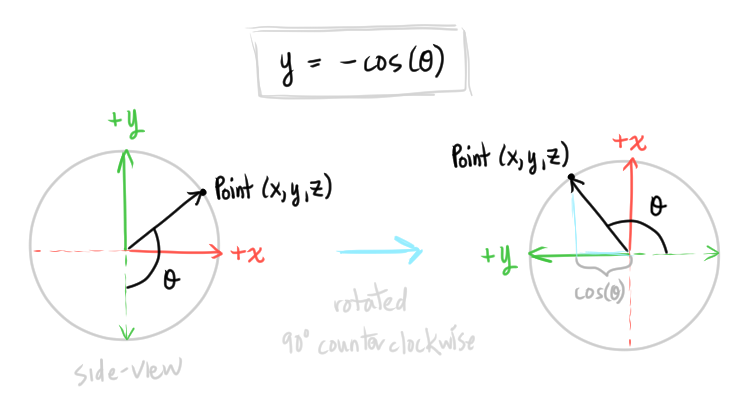 y = -cos(θ)
+y
Point (x,y,z)
+x
θ
side-view
rotated
90° counterclockwise
+x
Point (x,y,z)
θ
+y
cos(θ)